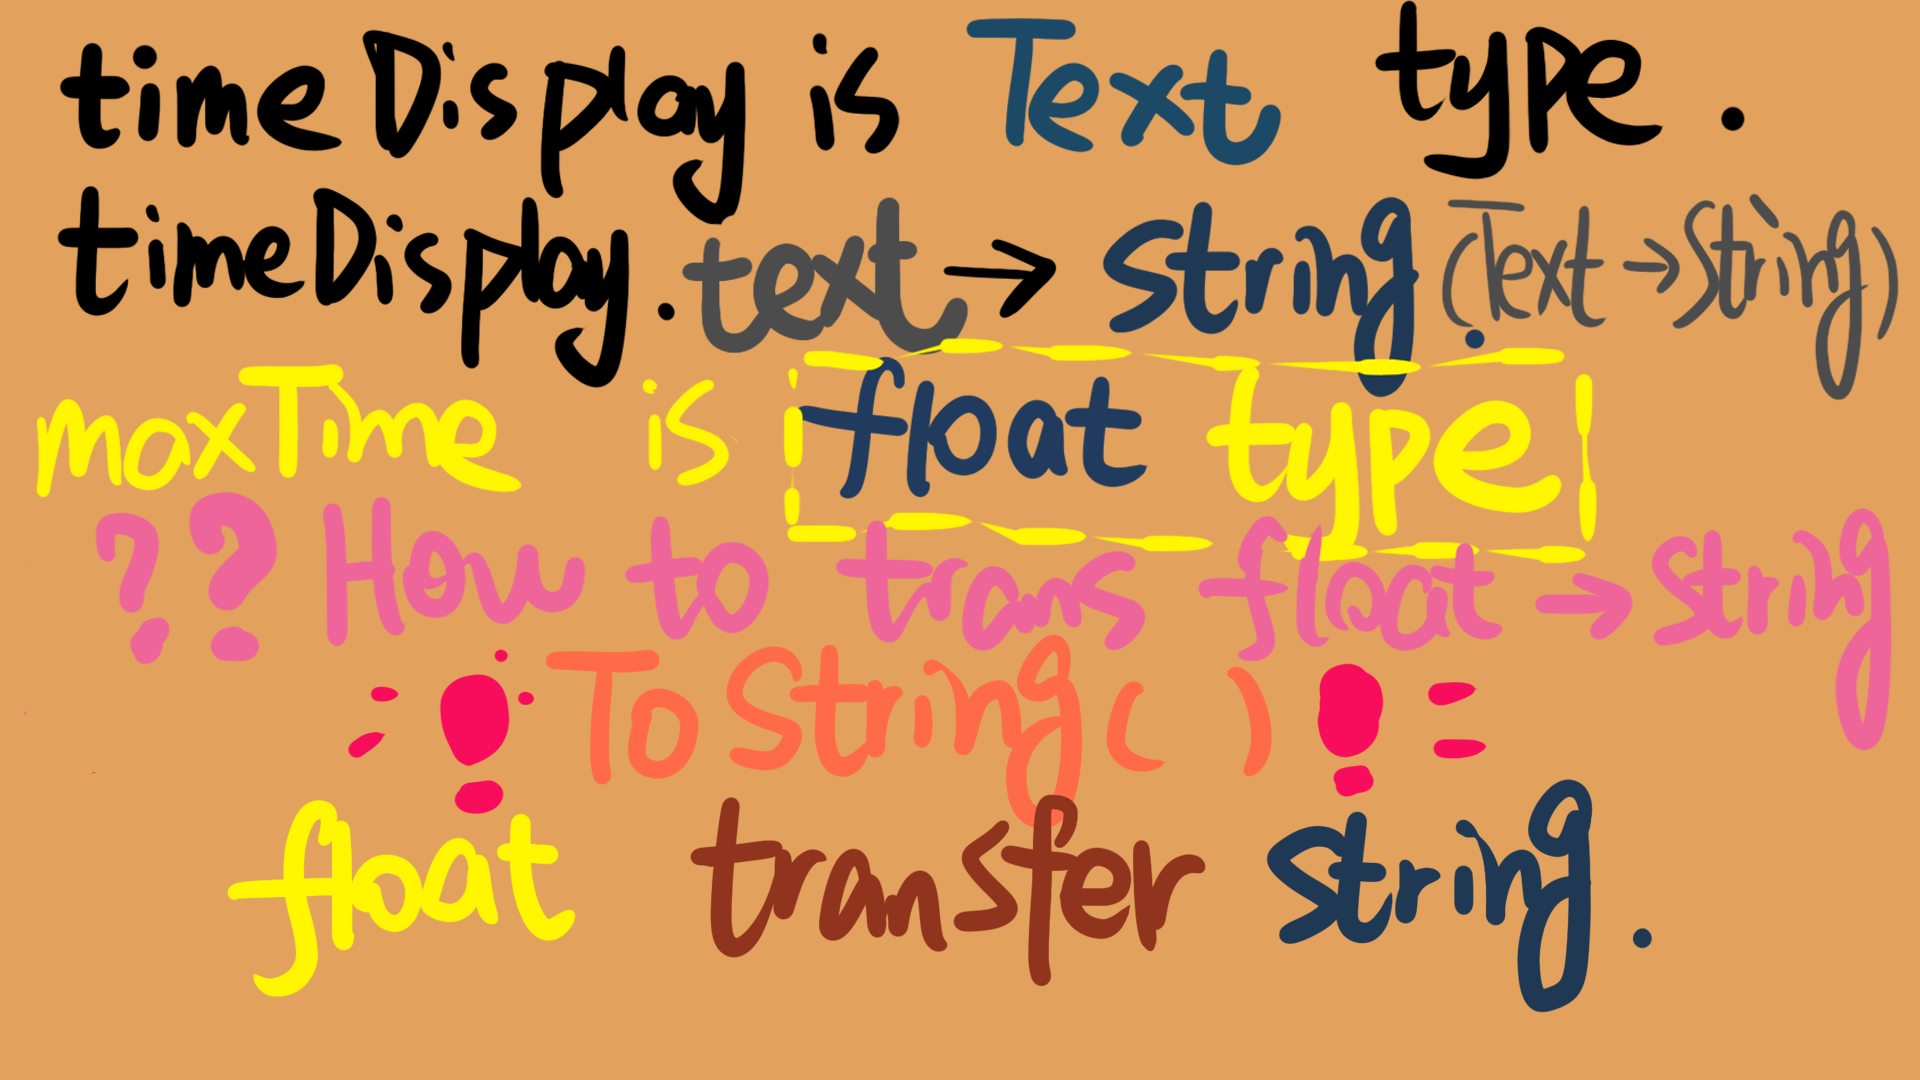 timeDisplay is Text type.
timeDisplay.text → string (Text → String)
maxTime is float type
?? How to trans float → string
! ToString( ) !
float transfer string.